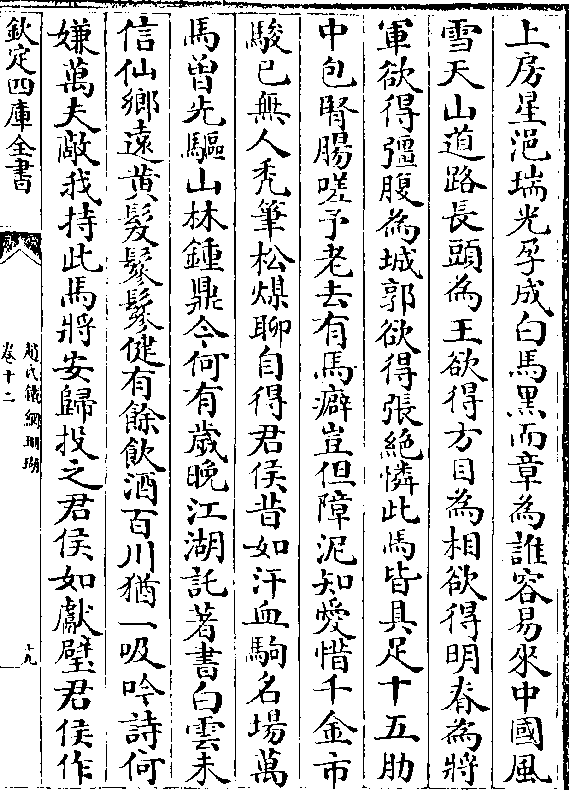 上房星浥瑞光孕成白馬黑而章為誰容易來中國風
雪天山道路長頭為王欲得方目為相欲得明脊為將
軍欲得彊腹為城郭欲得張絶憐此馬皆具足十五肋
中包腎腸嗟予老去有馬癖豈但障泥知愛惜千金市
駿已無人秃筆松煤聊自得君侯昔如汗血駒名場萬
馬曽先驅山林鍾鼎今何有歲晚江湖託著書白雲未
信仙鄉遠黄髮鬖鬖健有餘飲酒百川猶一吸吟詩何
嫌萬夫敵我持此馬將安歸投之君侯如獻璧君侯作
欽定四庫全書
趙氏鐵網珊瑚
卷十二
十九